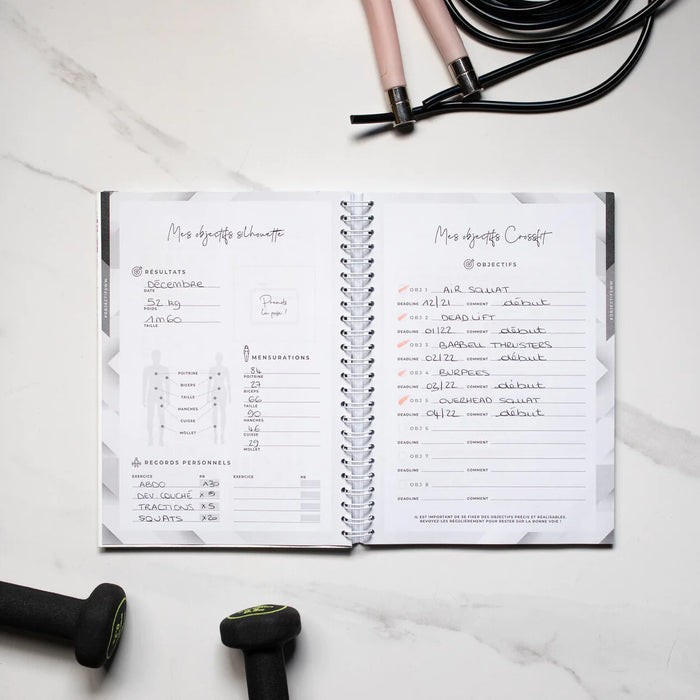 Mes objectifs silhouette
RÉSULTATS
Décembre
DATE
52 kg
POIDS
1m60
TAILLE
Prends
la pose !
MENSURATIONS
84
POITRINE
27
BICEPS
66
TAILLE
90
HANCHES
46
CUISSE
29
MOLLET
POITRINE
BICEPS
TAILLE
HANCHES
CUISSE
MOLLET
RECORDS PERSONNELS
EXERCICE PR EXERCICE PR
ABDO x30
DEV COUCHÉ x8
TRACTIONS x5
SQUATS x20
Mes objectifs Crossfit
OBJECTIFS
OBJ 1 AIR SQUAT
DEADLINE 12/21 COMMENT début
OBJ 2 DEADLIFT
DEADLINE 01/22 COMMENT début
OBJ 3 BARBELL THRUSTERS
DEADLINE 02/22 COMMENT début
OBJ 4 BURPEES
DEADLINE 03/22 COMMENT début
OBJ 5 OVERHEAD SQUAT
DEADLINE 04/22 COMMENT début
OBJ 6
DEADLINE COMMENT
OBJ 7
DEADLINE COMMENT
OBJ 8
DEADLINE COMMENT
IL EST IMPORTANT DE SE FIXER DES OBJECTIFS PRÉCIS ET RÉALISABLES.
REVOYEZ-LES RÉGULIÈREMENT POUR RESTER SUR LA BONNE VOIE !